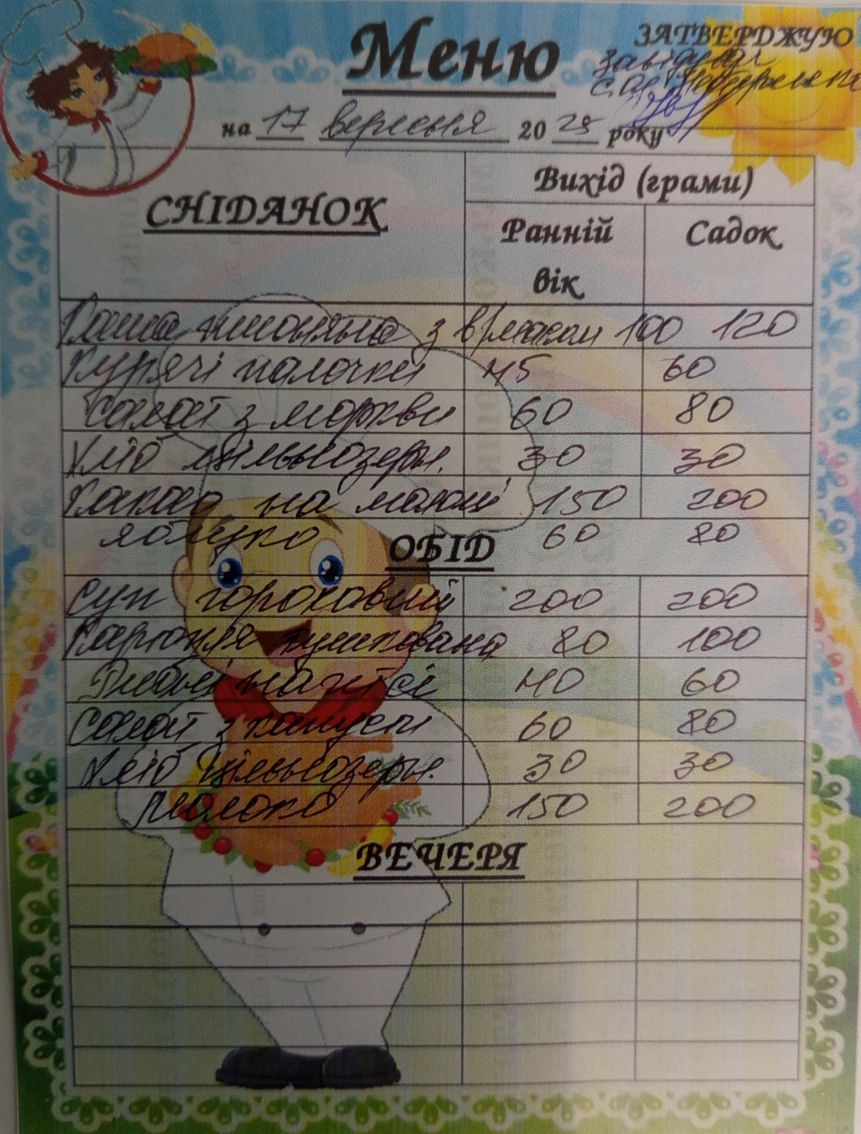 Меню
ЗАТВЕРДЖУЮ
Завідувач
на 17 вересня 2025 року
СНІДАНОК
Вихід (грами)
Ранній вік
Садок
Каша пшоняна з 100 120
Курячі палочки 45 60
Салат з моркви 60 80
Хліб цільнозерн. 30 30
Какао на молоці 150 200
яблуко 60 80
ОБІД
Суп гороховий 200 200
Картопля тушкована 80 100
Рибні нагетсі 40 60
Салат з капусти 60 80
Хліб цільнозерн. 30 30
Молоко 150 200
ВЕЧЕРЯ